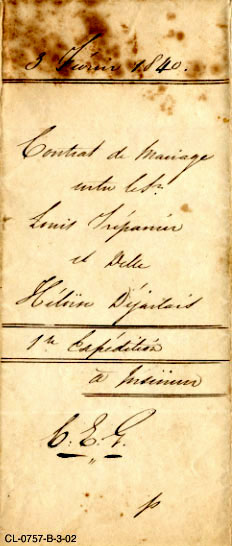 3 Février 1840.
Contrat de Mariage
entre le Sr.
Louis Trépanier
et Delle
Héloïse Déjarlais
1re Expédition
à Insinuer
C. E. G.
p
CL-0757-B-3-02